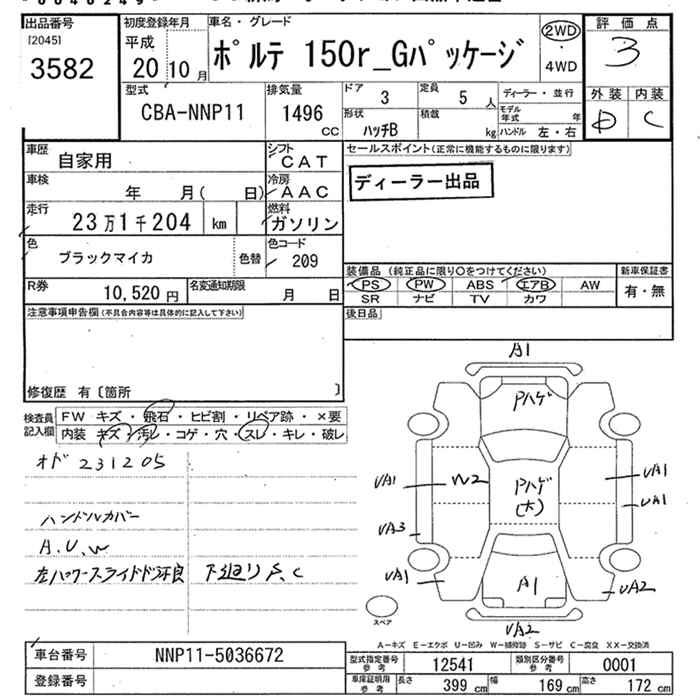 出品番号
[2045]
3582
初度登録年月
平成
20 10 月
車名・グレード
ポルテ 150r_Gパッケージ
2WD
・
4WD
評価点
3
外装 内装
D C
型式
CBA-NNP11
排気量
1496
CC
ドア
3
定員
5 人
形状
ハッチB
積載
kg
ディーラー・並行
モデル年式 年
ハンドル 左・右
車歴
自家用
シフト
CAT
車検
年 月( 日)
冷房
AAC
走行
23万1千204 km
燃料
ガソリン
色
ブラックマイカ
色替
色コード
209
R券
10,520 円
名変通知期限
月 日
セールスポイント(正常に機能するものに限ります)
ディーラー出品
装備品 (純正品に限り○をつけてください)
PS PW ABS エアB AW
SR ナビ TV カワ
新車保証書
有・無
後日品
注意事項申告欄(不具合内容等は具体的に記入して下さい)
修復歴 有〔箇所 〕
検査員記入欄
FW キズ・飛石・ヒビ割・リペア跡・×要
内装 キズ・汚レ・コゲ・穴・スレ・キレ・破レ
オド 231205
ハンドルカバー
A.U.W
左パワースライドドア不良
下廻り S.C
A1
Pハゲ
UA1
W2
Pハゲ
(大)
UA1
UA1
UA3
UA1
A1
UA2
UA2
スペア
A-キズ E-エクボ U-凹み W-補修跡 S-サビ C-腐食 XX-交換済
車台番号
NNP11-5036672
登録番号
型式指定番号
参考
12541
類別区分番号
参考
0001
車庫証明用
参考
長さ
399 cm
幅
169 cm
高さ
172 cm